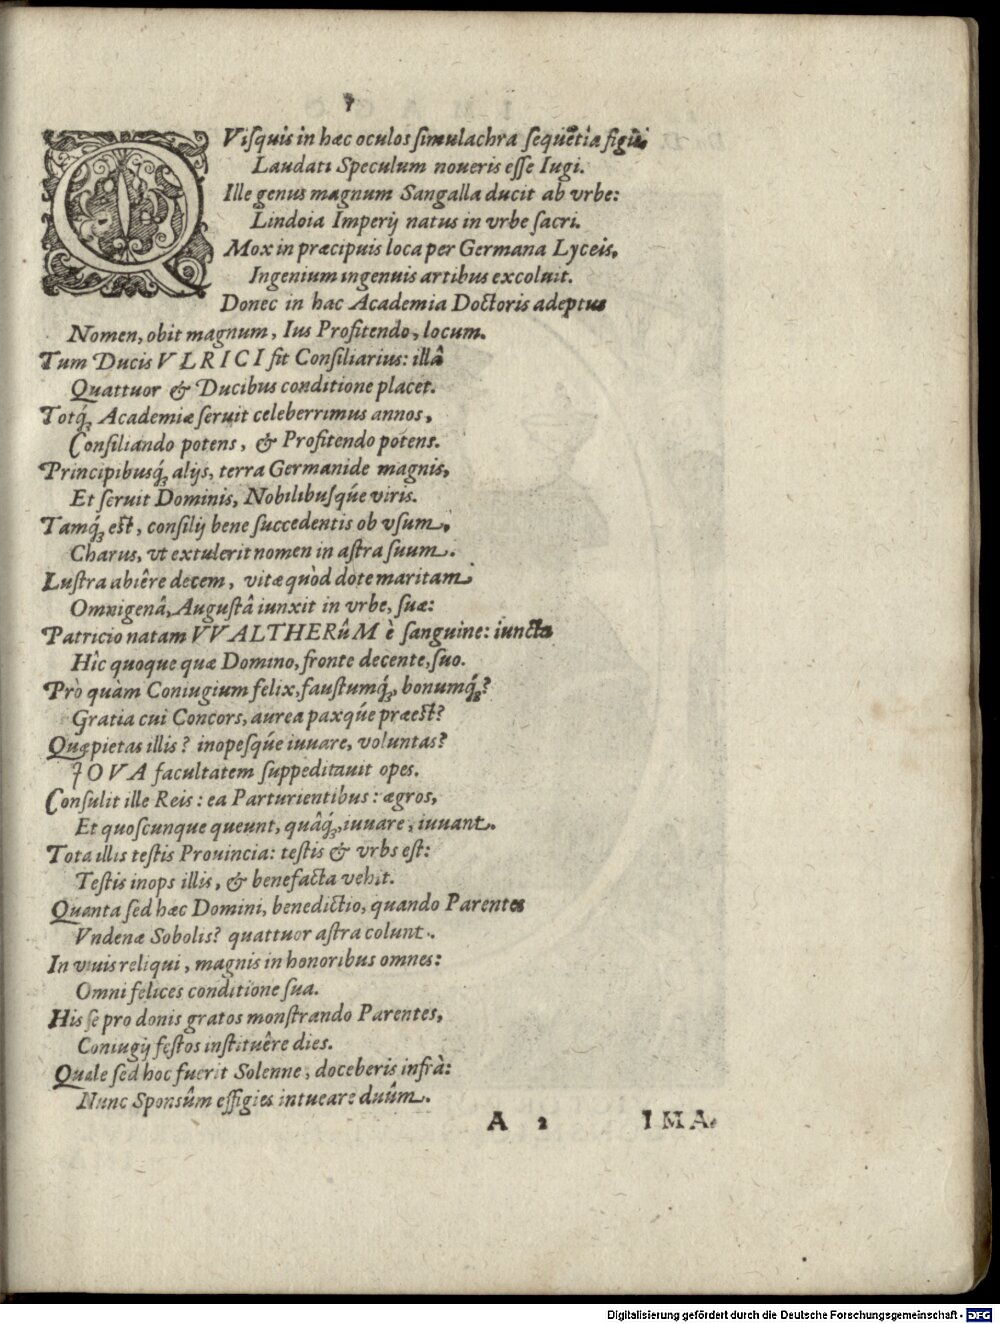 QVisquis in hæc oculos simulachra sequẽtia figis
Laudati Speculum noueris esse Iugi.
Ille genus magnum Sangalla ducit ab vrbe:
Lindoia Imperij natus in vrbe sacri.
Mox in præcipuis loca per Germana Lyceis,
Ingenium ingenuis artibus excoluit.
Donec in hac Academia Doctoris adeptus
Nomen, obit magnum, Ius Profitendo, locum.
Tum Ducis VLRICI fit Consiliarius: illâ
Quattuor & Ducibus conditione placet.
Totq́ꝫ Academiæ seruit celeberrimus annos,
Consiliando potens, & Profitendo potens.
Principibusq́ꝫ alijs, terra Germanide magnis,
Et seruit Dominis, Nobilibusq́ue viris.
Tamq́ꝫ est, consilij bene succedentis ob vsum,
Charus, vt extulerit nomen in astra suum.
Lustra abiêre decem, vitæ quòd dote maritam
Omnigenâ, Augustâ iunxit in vrbe, suæ:
Patricio natam VVALTHERûM è sanguine: iuncta
Hîc quoque quæ Domino, fronte decente, suo.
Prò quàm Coniugium felix, faustumq́ꝫ, bonumq́ꝫ?
Gratia cui Concors, aurea paxq́ue præest?
Quæ pietas illis? inopesq́ue iuuare, voluntas?
JOVA facultatem suppeditauit opes.
Consulit ille Reis: ea Parturientibus: ægros,
Et quoscunque queunt, quâq́ꝫ, iuuare, iuuant.
Tota illis testis Prouincia: testis & vrbs est:
Testis inops illis, & benefacta vehit.
Quanta sed hæc Domini, benedictio, quando Parentes
Vndenæ Sobolis? quattuor astra colunt.
In viuis reliqui, magnis in honoribus omnes:
Omni felices conditione sua.
His se pro donis gratos monstrando Parentes,
Coniugij festos instituêre dies.
Quale sed hoc fuerit Solenne, doceberis infrà:
Nunc Sponsûm effigies intueare duûm.
A 2 IMA-
Digitalisierung gefördert durch die Deutsche Forschungsgemeinschaft - DFG